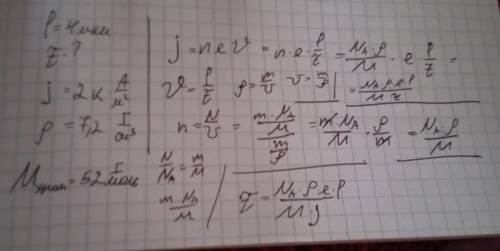 ℓ = 4 мкм
τ - ?
j = 2 к А/м²
ρ = 7,2 г/см³
Mхром = 52 г/моль
j = n e v = n·e·ℓ/τ = (N_A·ρ)/M · e·ℓ/τ =
v = ℓ/τ ρ = m/v v = m/ρ = (N_A ρ e ℓ)/(M τ)
n = N/v = (m·N_A/M)/(m/ρ) = (m·N_A)/M · ρ/m = (N_A·ρ)/M
N/N_A = m/M
(m·N_A)/M
τ = (N_A·ρ e·ℓ)/(M·j)